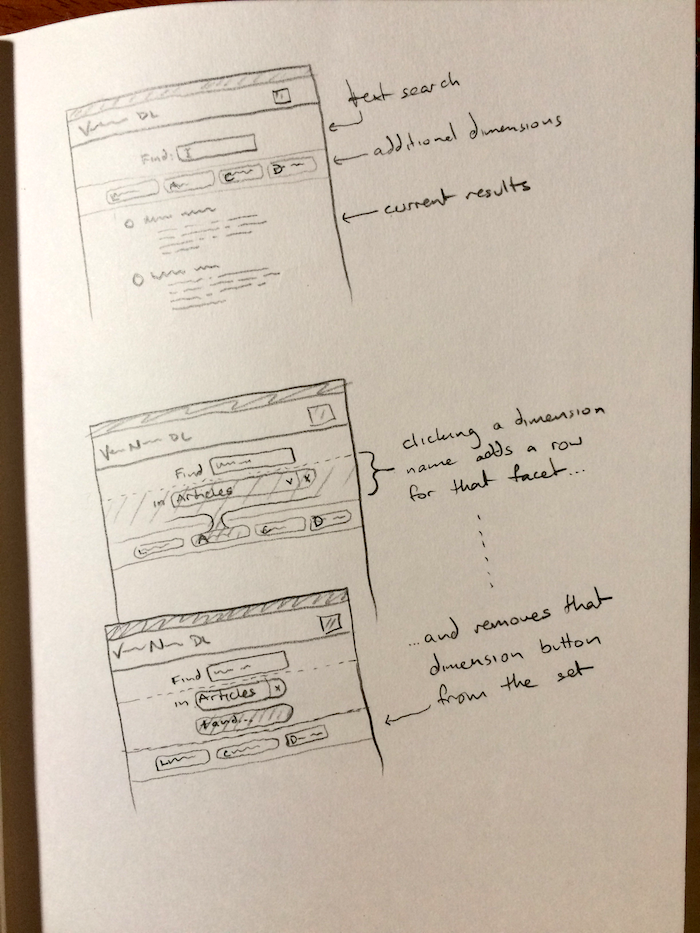 text search
DL
Find: I
additional dimensions
A
C
D
current results
DL
clicking a dimension
name adds a row
for that facet...
Find
in Articles v x
A
C
D
DL
...and removes that
dimension button
from the set
Find
in Articles x
C
D